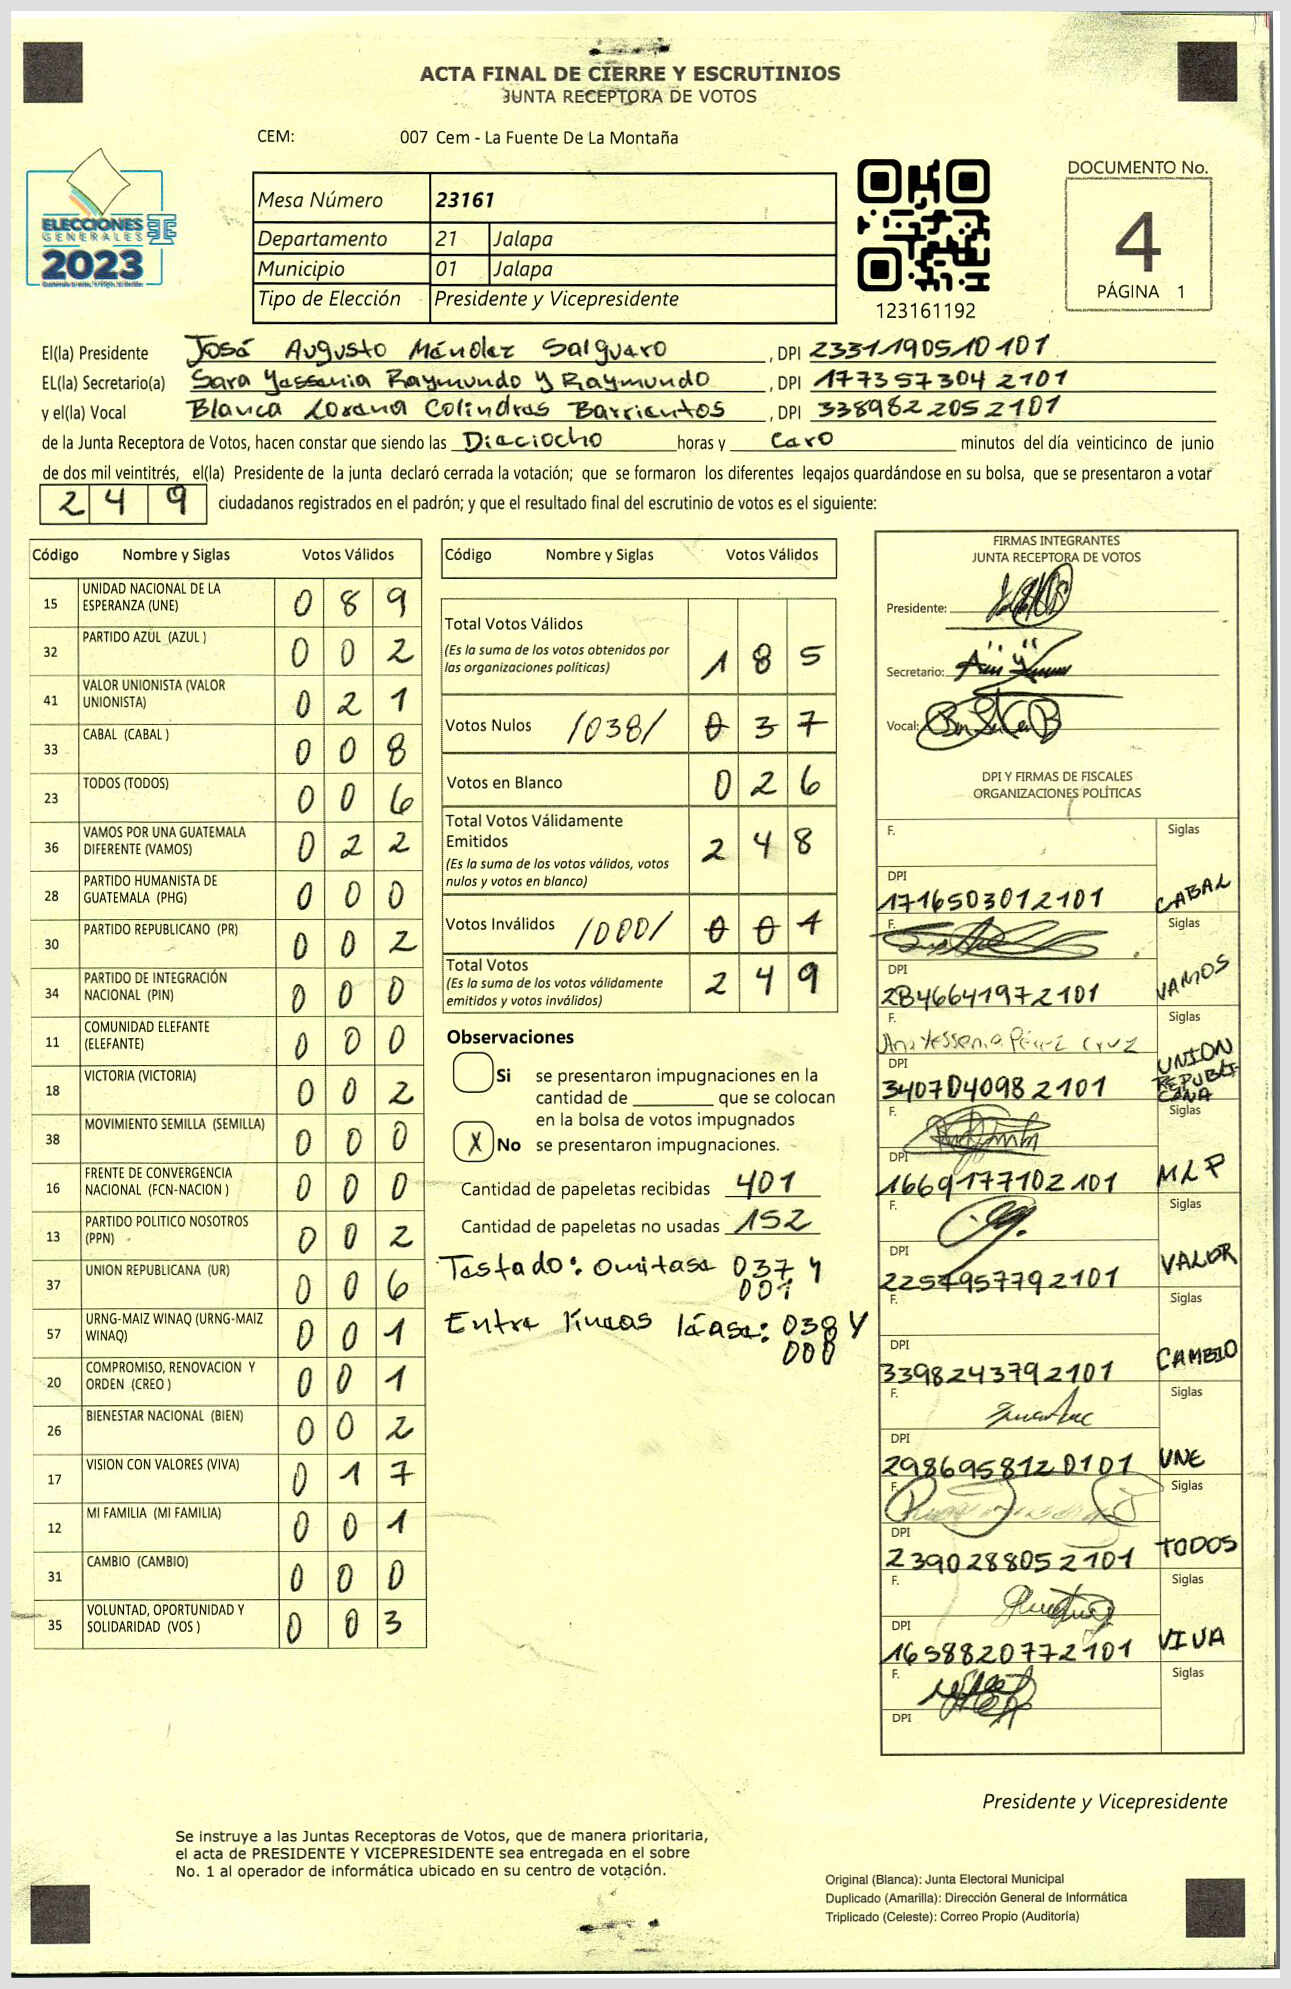 ACTA FINAL DE CIERRE Y ESCRUTINIOS
JUNTA RECEPTORA DE VOTOS
CEM: 007 Cem - La Fuente De La Montaña
ELECCIONES
GENERALES
2023
Mesa Número 23161
Departamento 21 Jalapa
Municipio 01 Jalapa
Tipo de Elección Presidente y Vicepresidente
123161192
DOCUMENTO No.
4
PÁGINA 1
El(la) Presidente José Augusto Méndez Salguero , DPI 2331190510101
EL(la) Secretario(a) Sara Yessenia Raymundo y Raymundo , DPI 1773573042101
y el(la) Vocal Blanca Lorena Colindres Barrientos , DPI 3389822052101
de la Junta Receptora de Votos, hacen constar que siendo las Dieciocho horas y Cero minutos del día veinticinco de junio
de dos mil veintitrés, el(la) Presidente de la junta declaró cerrada la votación; que se formaron los diferentes legajos guardándose en su bolsa, que se presentaron a votar
249 ciudadanos registrados en el padrón; y que el resultado final del escrutinio de votos es el siguiente:
Código Nombre y Siglas Votos Válidos
15 UNIDAD NACIONAL DE LA ESPERANZA (UNE) 0 8 9
32 PARTIDO AZUL (AZUL ) 0 0 2
41 VALOR UNIONISTA (VALOR UNIONISTA) 0 2 1
33 CABAL (CABAL ) 0 0 8
23 TODOS (TODOS) 0 0 6
36 VAMOS POR UNA GUATEMALA DIFERENTE (VAMOS) 0 2 2
28 PARTIDO HUMANISTA DE GUATEMALA (PHG) 0 0 0
30 PARTIDO REPUBLICANO (PR) 0 0 2
34 PARTIDO DE INTEGRACIÓN NACIONAL (PIN) 0 0 0
11 COMUNIDAD ELEFANTE (ELEFANTE) 0 0 0
18 VICTORIA (VICTORIA) 0 0 2
38 MOVIMIENTO SEMILLA (SEMILLA) 0 0 0
16 FRENTE DE CONVERGENCIA NACIONAL (FCN-NACION ) 0 0 0
13 PARTIDO POLITICO NOSOTROS (PPN) 0 0 2
37 UNION REPUBLICANA (UR) 0 0 6
57 URNG-MAIZ WINAQ (URNG-MAIZ WINAQ) 0 0 1
20 COMPROMISO, RENOVACION Y ORDEN (CREO ) 0 0 1
26 BIENESTAR NACIONAL (BIEN) 0 0 2
17 VISION CON VALORES (VIVA) 0 1 7
12 MI FAMILIA (MI FAMILIA) 0 0 1
31 CAMBIO (CAMBIO) 0 0 0
35 VOLUNTAD, OPORTUNIDAD Y SOLIDARIDAD (VOS ) 0 0 3
Código Nombre y Siglas Votos Válidos
Total Votos Válidos
(Es la suma de los votos obtenidos por
las organizaciones políticas) 1 8 5
Votos Nulos /038/ 0 3 7
Votos en Blanco 0 2 6
Total Votos Válidamente
Emitidos
(Es la suma de los votos válidos, votos
nulos y votos en blanco) 2 4 8
Votos Inválidos /000/ 0 0 1
Total Votos
(Es la suma de los votos válidamente
emitidos y votos inválidos) 2 4 9
Observaciones
Si se presentaron impugnaciones en la
cantidad de ________ que se colocan
en la bolsa de votos impugnados
X No se presentaron impugnaciones.
Cantidad de papeletas recibidas 401
Cantidad de papeletas no usadas 152
Testado: Omitase 037 y
001
Entre líneas léase: 038 Y
000
FIRMAS INTEGRANTES
JUNTA RECEPTORA DE VOTOS
Presidente:
Secretario:
Vocal:
DPI Y FIRMAS DE FISCALES
ORGANIZACIONES POLÍTICAS
F. Siglas
DPI
1716503012101 CABAL
F. Siglas
DPI
2846641972101 VAMOS
F. Siglas
Ana Yessenia Pérez Cruz
DPI
3407040982101 UNION REPUBLICANA
F. Siglas
DPI
1669177102101 MLP
F. Siglas
DPI
2257957792101 VALOR
F. Siglas
DPI
3398243792101 CAMBIO
F. Siglas
DPI
2986958120101 UNE
F. Siglas
DPI
2390288052101 TODOS
F. Siglas
DPI
1658820772101 VIVA
F. Siglas
DPI
Presidente y Vicepresidente
Se instruye a las Juntas Receptoras de Votos, que de manera prioritaria,
el acta de PRESIDENTE Y VICEPRESIDENTE sea entregada en el sobre
No. 1 al operador de informática ubicado en su centro de votación.
Original (Blanca): Junta Electoral Municipal
Duplicado (Amarilla): Dirección General de Informática
Triplicado (Celeste): Correo Propio (Auditoría)